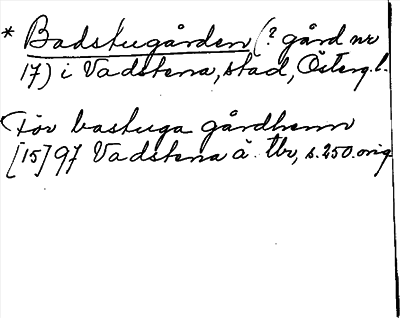 * Badstugården (? gård nr
17) i Vadstena, stad, Österg. l.
För bastuga gårdhenn
[15]97 Vadstena ä. tbr, s. 250. orig